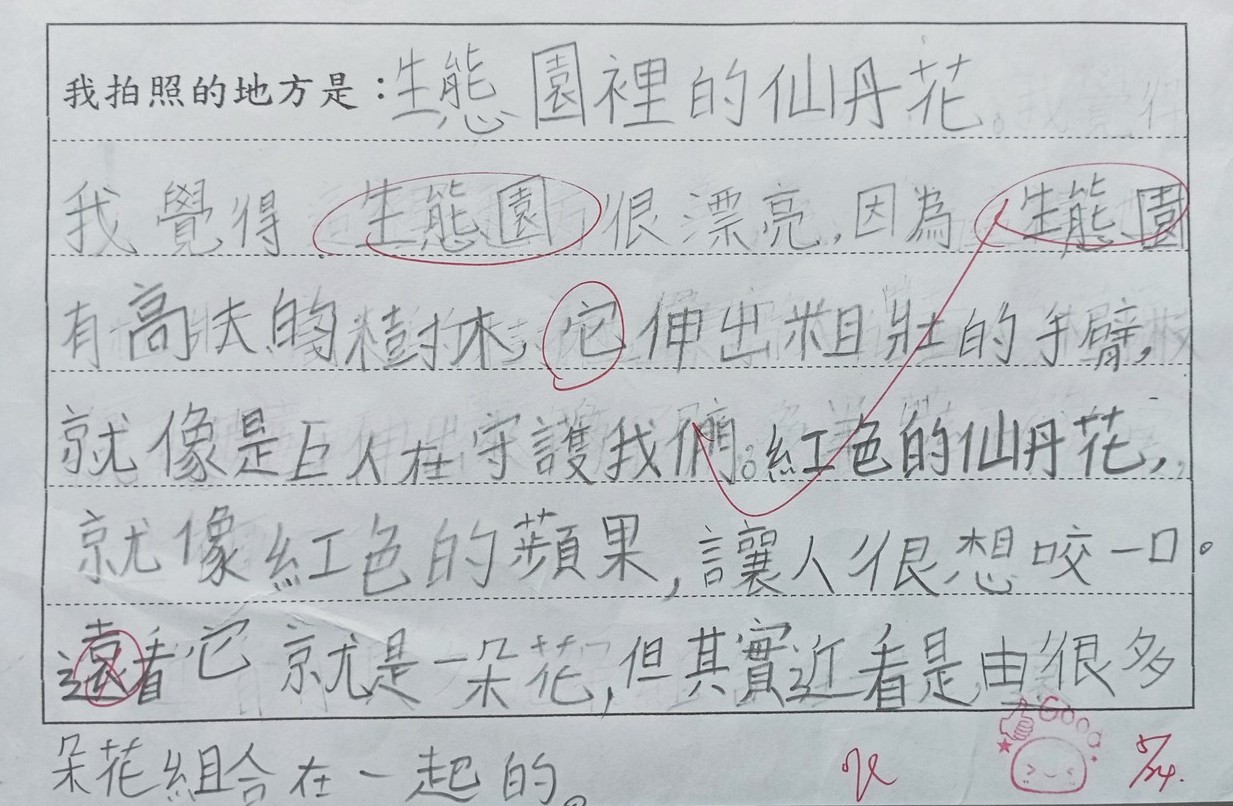 我拍照的地方是:生態園裡的仙丹花。
我覺得生態園很漂亮,因為生態園
有高大的樹木,它伸出粗壯的手臂,
就像是巨人在守護我們。紅色的仙丹花,
就像紅色的蘋果,讓人很想咬一口。
遠看它就是一朵花,但其實近看是由很多
朵花組合在一起的。
Good
5/24.